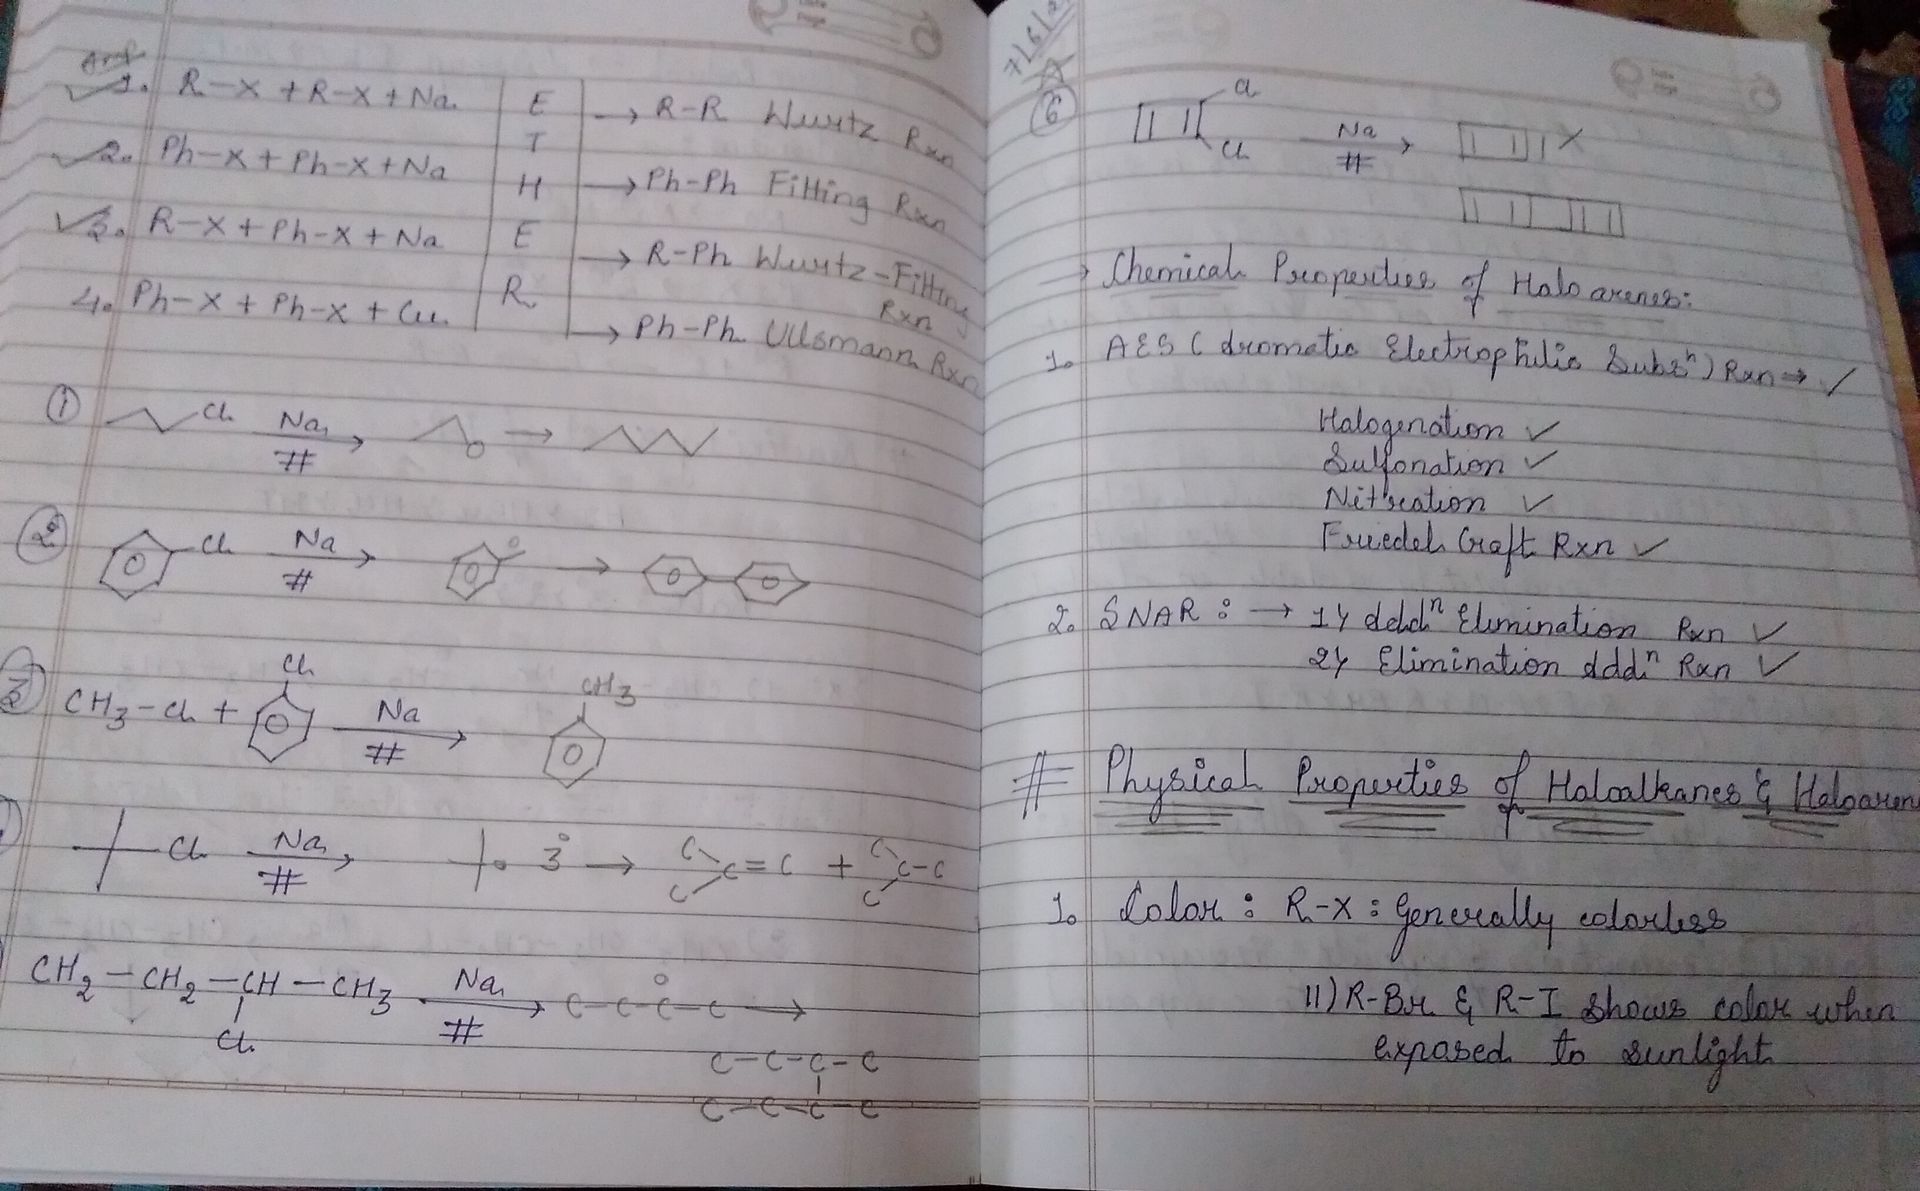 Imp
1. R-X + R-X + Na E → R-R Wurtz Rxn
T
2. Ph-X + Ph-X + Na H → Ph-Ph Fitting Rxn
3. R-X + Ph-X + Na E → R-Ph Wurtz-Fitting Rxn
4. Ph-X + Ph-X + Cu R → Ph-Ph Ullsmann Rxn
① Cl Na → →
#
② Cl Na → →
#
3 CH3-Cl + Cl Na → CH3
#
Cl Na → 3° → C C C=C + C C C-C
#
CH2-CH2-CH-CH3 Na → C-C-C-C →
Cl #
C-C-C-C
C-C-C-C
7/6/2
⑥ Cl Cl Na → X
#
→ Chemical Properties of Haloarenes:
1. AES (Aromatic Electrophilic Subsⁿ) Rxn → ✓
Halogenation ✓
Sulfonation ✓
Nitration ✓
Friedel Craft Rxn ✓
2. SNAR : → 1) Addⁿ Elimination Rxn ✓
2) Elimination Addⁿ Rxn ✓
# Physical Properties of Haloalkanes & Haloaren
1. Color : R-X : Generally colorless
11) R-Br & R-I shows color when
exposed to sunlight